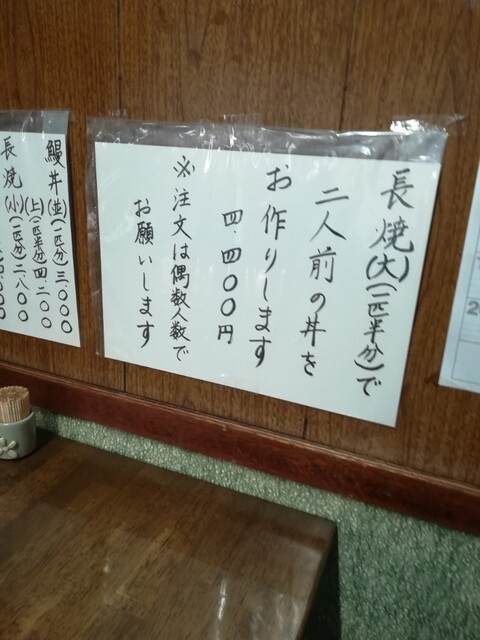 長焼(大)(一匹半分)で
二人前の丼を
お作りします
四.四〇〇円
※注文は偶数人数で
お願いします
鰻丼(並)(一匹分)三.〇〇〇
(上)(一匹半分)四.二〇〇
長焼(小)(一匹分)二.八〇〇